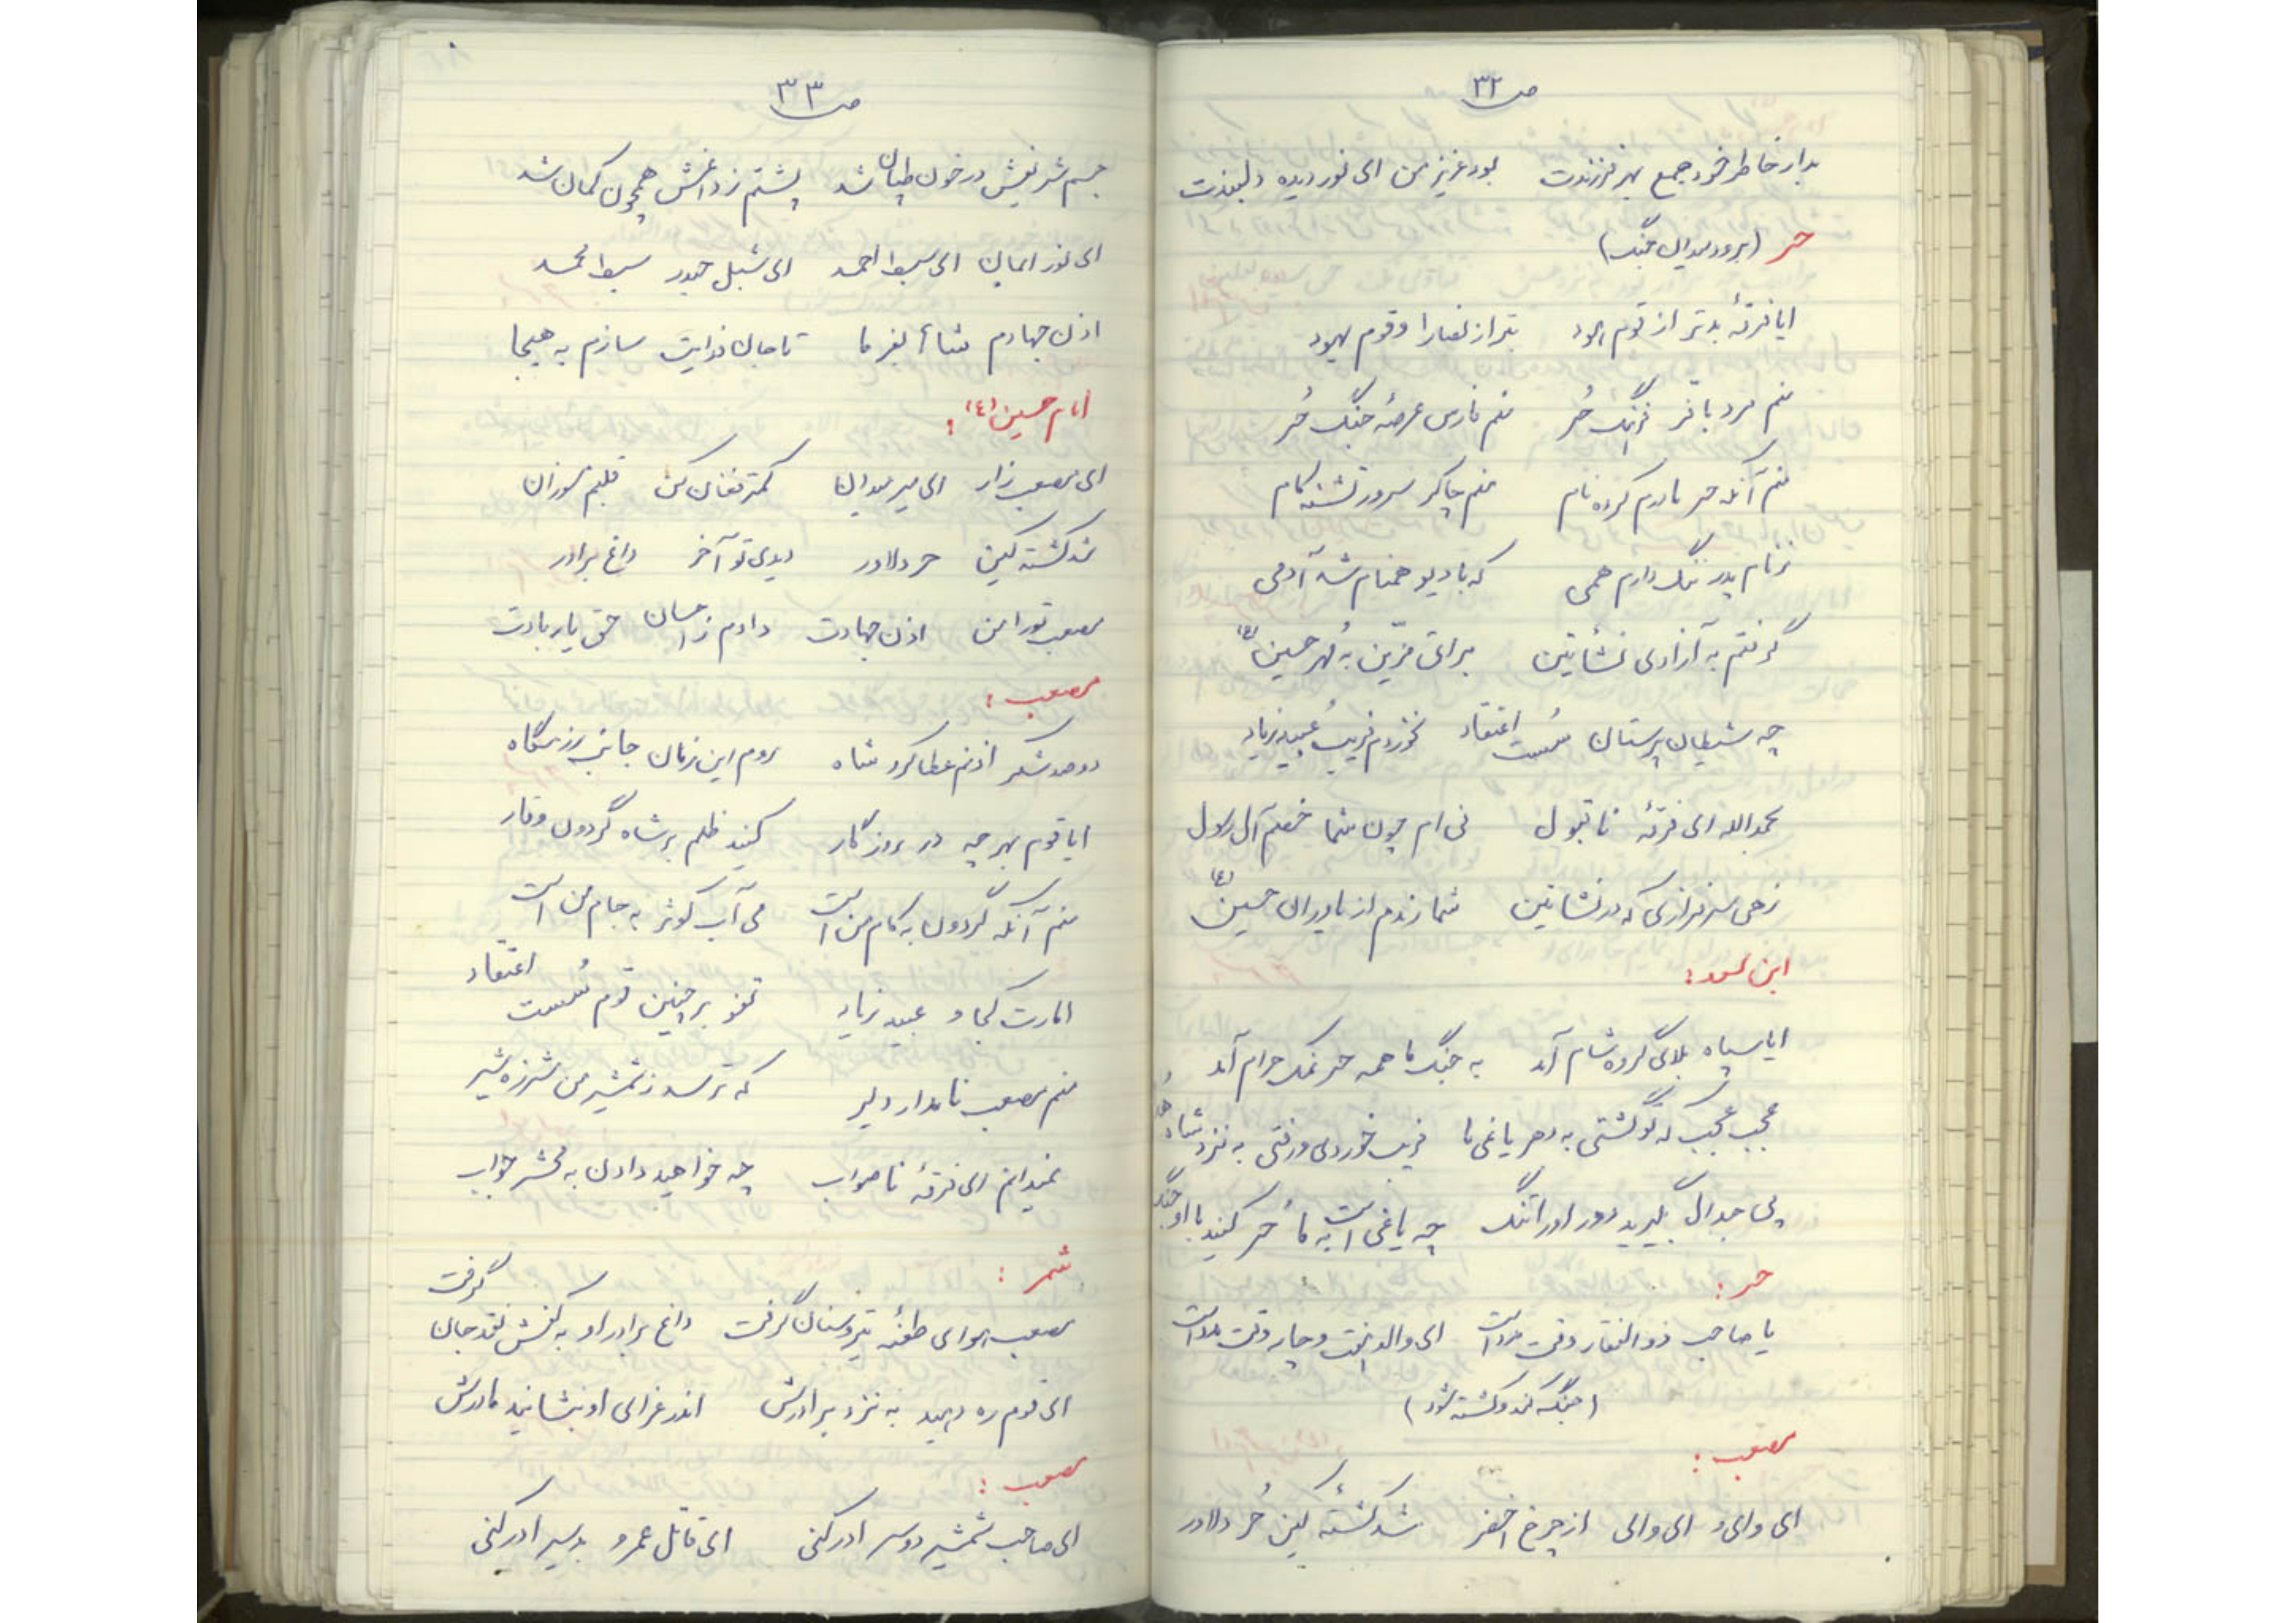 ص ۳۲
بدار خاطر خود جمع بهر فرزندت بود عزیز من ای نور دیده دلبندت
حر (برود میدان جنگ)
ایا فرقهٔ بدتر از قوم هود بتر از نصارا و قوم یهود
منم مرد با فر فرهنگ حُر منم فارس عرصهٔ جنگ حُر
منم آنکه حر مادرم کرده نام منم چاکر سرور تشنه کام
ز نام پدر ننگ دارم همی که با دیو همنام شه آدمی
گرفتم به آزادی نشأتین براتی مزین به مُهر حسین (ع)
چه شیطان پرستان سُست اعتقاد نخوردم فریب عُبید زیاد
بحمدالله ای فرقهٔ ناقبول نی ام چون شما خصم آل رسول
زهی سرفرازی که در نشأتین شمارندم از یاوران حسین (ع)
ابن سعد:
ایا سپاه بلای گروه شام آمد به جنگ ما همه حر نمک حرام آمد
عجب عجب که تو گشتی به دهر یاغی ما فریب خوردی و رفتی به نزد شاه
پی جدال بگیرید دور او را تنگ چه یاغی است به ما حُر کنید با او جنگ
حر:
یا صاحب ذوالفقار وقت مدد است ای والد هشت و چار وقت مدد است
(جنگ کند و کشته شود)
مصعب:
ای وای و ای وای از چرخ اخضر شد کشتهٔ کین حُر دلاور
ص ۳۳
جسم شریفش در خون طپان شد پشتم ز داغش همچون کمان شد
ای نور ایمان ای سبط احمد ای شبل حیدر سبط محمد
اذن جهادم شاها بفرما تا جان فدایت سازم به هیجا
امام حسین (ع):
ای مصعب زار ای میر میدان کمتر فغان کن قلبم مسوزان
شد کشته کین حر دلاور دیدی تو آخر داغ برادر
مصعب تو را من اذن جهادت دادم ز احسان حق یار بادت
مصعب:
دو صد شکر اذنم عطا کرد شاه روم این زمان جانب رزمگاه
ایا قوم بهر چه در روزگار کنید ظلم بر شاه گردون وقار
منم آنکه گردون به کام من است می آب کوثر به جام من است
امارت کجا و عبید زیاد تفو بر چنین قوم سُست اعتقاد
منم مصعب نامدار دلیر که ترسد ز شمشیر من شرزه شیر
نمیدانم ای فرقهٔ ناصواب چه خواهید دادن به محشر جواب
شمر:
مصعب هوای طعنه تیر و سنان گرفت داغ برادر او به کفش نقد جان گرفت
ای قوم ره دهید به نزد برادرش اندر عزای او بنشانید مادرش
مصعب:
ای صاحب شمشیر دو سر ادرکنی ای قاتل عمرو ادرکنی